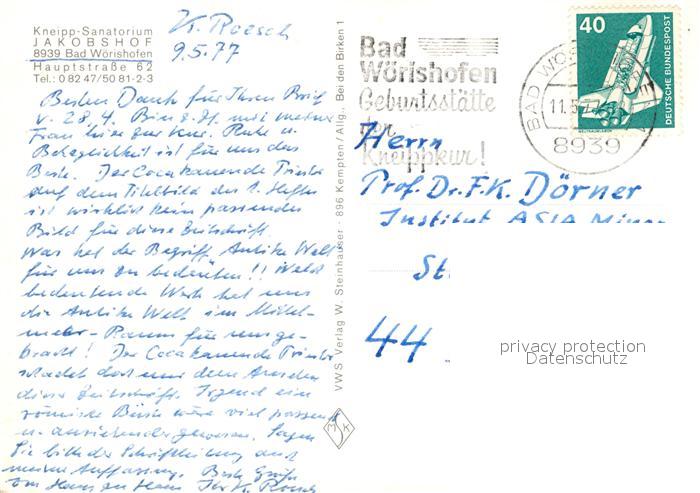 Kneipp-Sanatorium
JAKOBSHOF
8939 Bad Wörishofen
Hauptstraße 62
Tel.: 0 82 47/50 81-2-3
K. Roesch
9.5.77
Besten Dank für Ihren Brief
v. 28.4. Bin z.Zt. mit meiner
Frau hier zur Kur. Ruhe u.
Behaglichkeit ist für uns das
Beste. Der Coca kauende
auf dem Titelbild des 1. Heftes
ist wirklich kein passendes
Bild für diese Zeitschrift.
Was hat der Begriff "Antike Welt"
für uns zu bedeuten!! Welch
bedeutende Werk hat uns
die Antike Welt im Mittel-
meer-Raum für uns ge-
bracht! Der Coca kauende
schadet dort nur dem Ansehen
dieser Zeitschrift. Irgend eine
römische Büste wäre viel passender
u. anziehender gewesen. Sagen
Sie bitte der Schriftleitung das
meine Auffassung. Beste Grüße
von Haus zu Haus Ihr K. Roesch
VWS Verlag W. Steinhäuser · 896 Kempten/Allg. · Bei den Birken 1
MSK
Bad
Wörishofen
Geburtsstätte
der
Kneippkur!
BAD WÖ
11.5.77
8939
40
DEUTSCHE BUNDESPOST
WELTRAUMLABOR
Herrn
Prof. Dr. F.K. Dörner
Institut ASIA Minor
St
44
privacy protection
Datenschutz